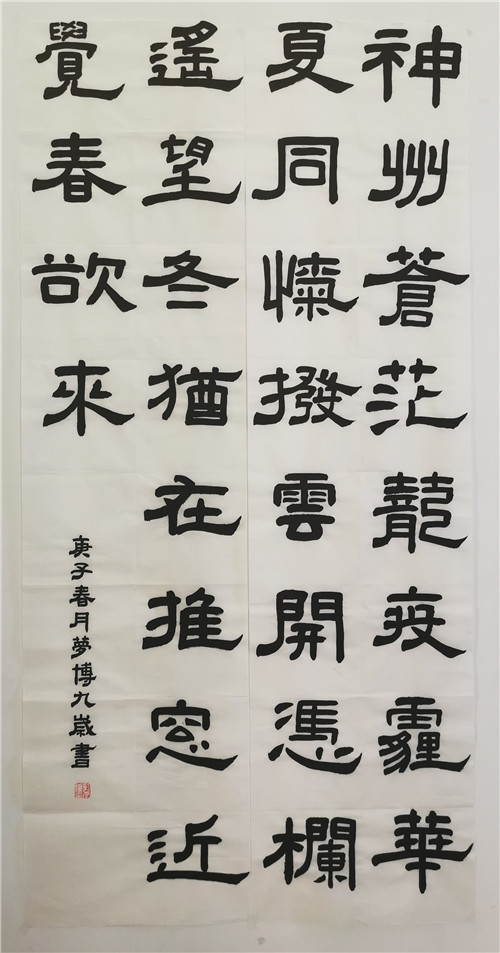 神州蒼茫疫霾華
夏同愾撥雲開憑欄
遙望冬猶在推窓近
覺春欲來
庚子春月夢博九歲書